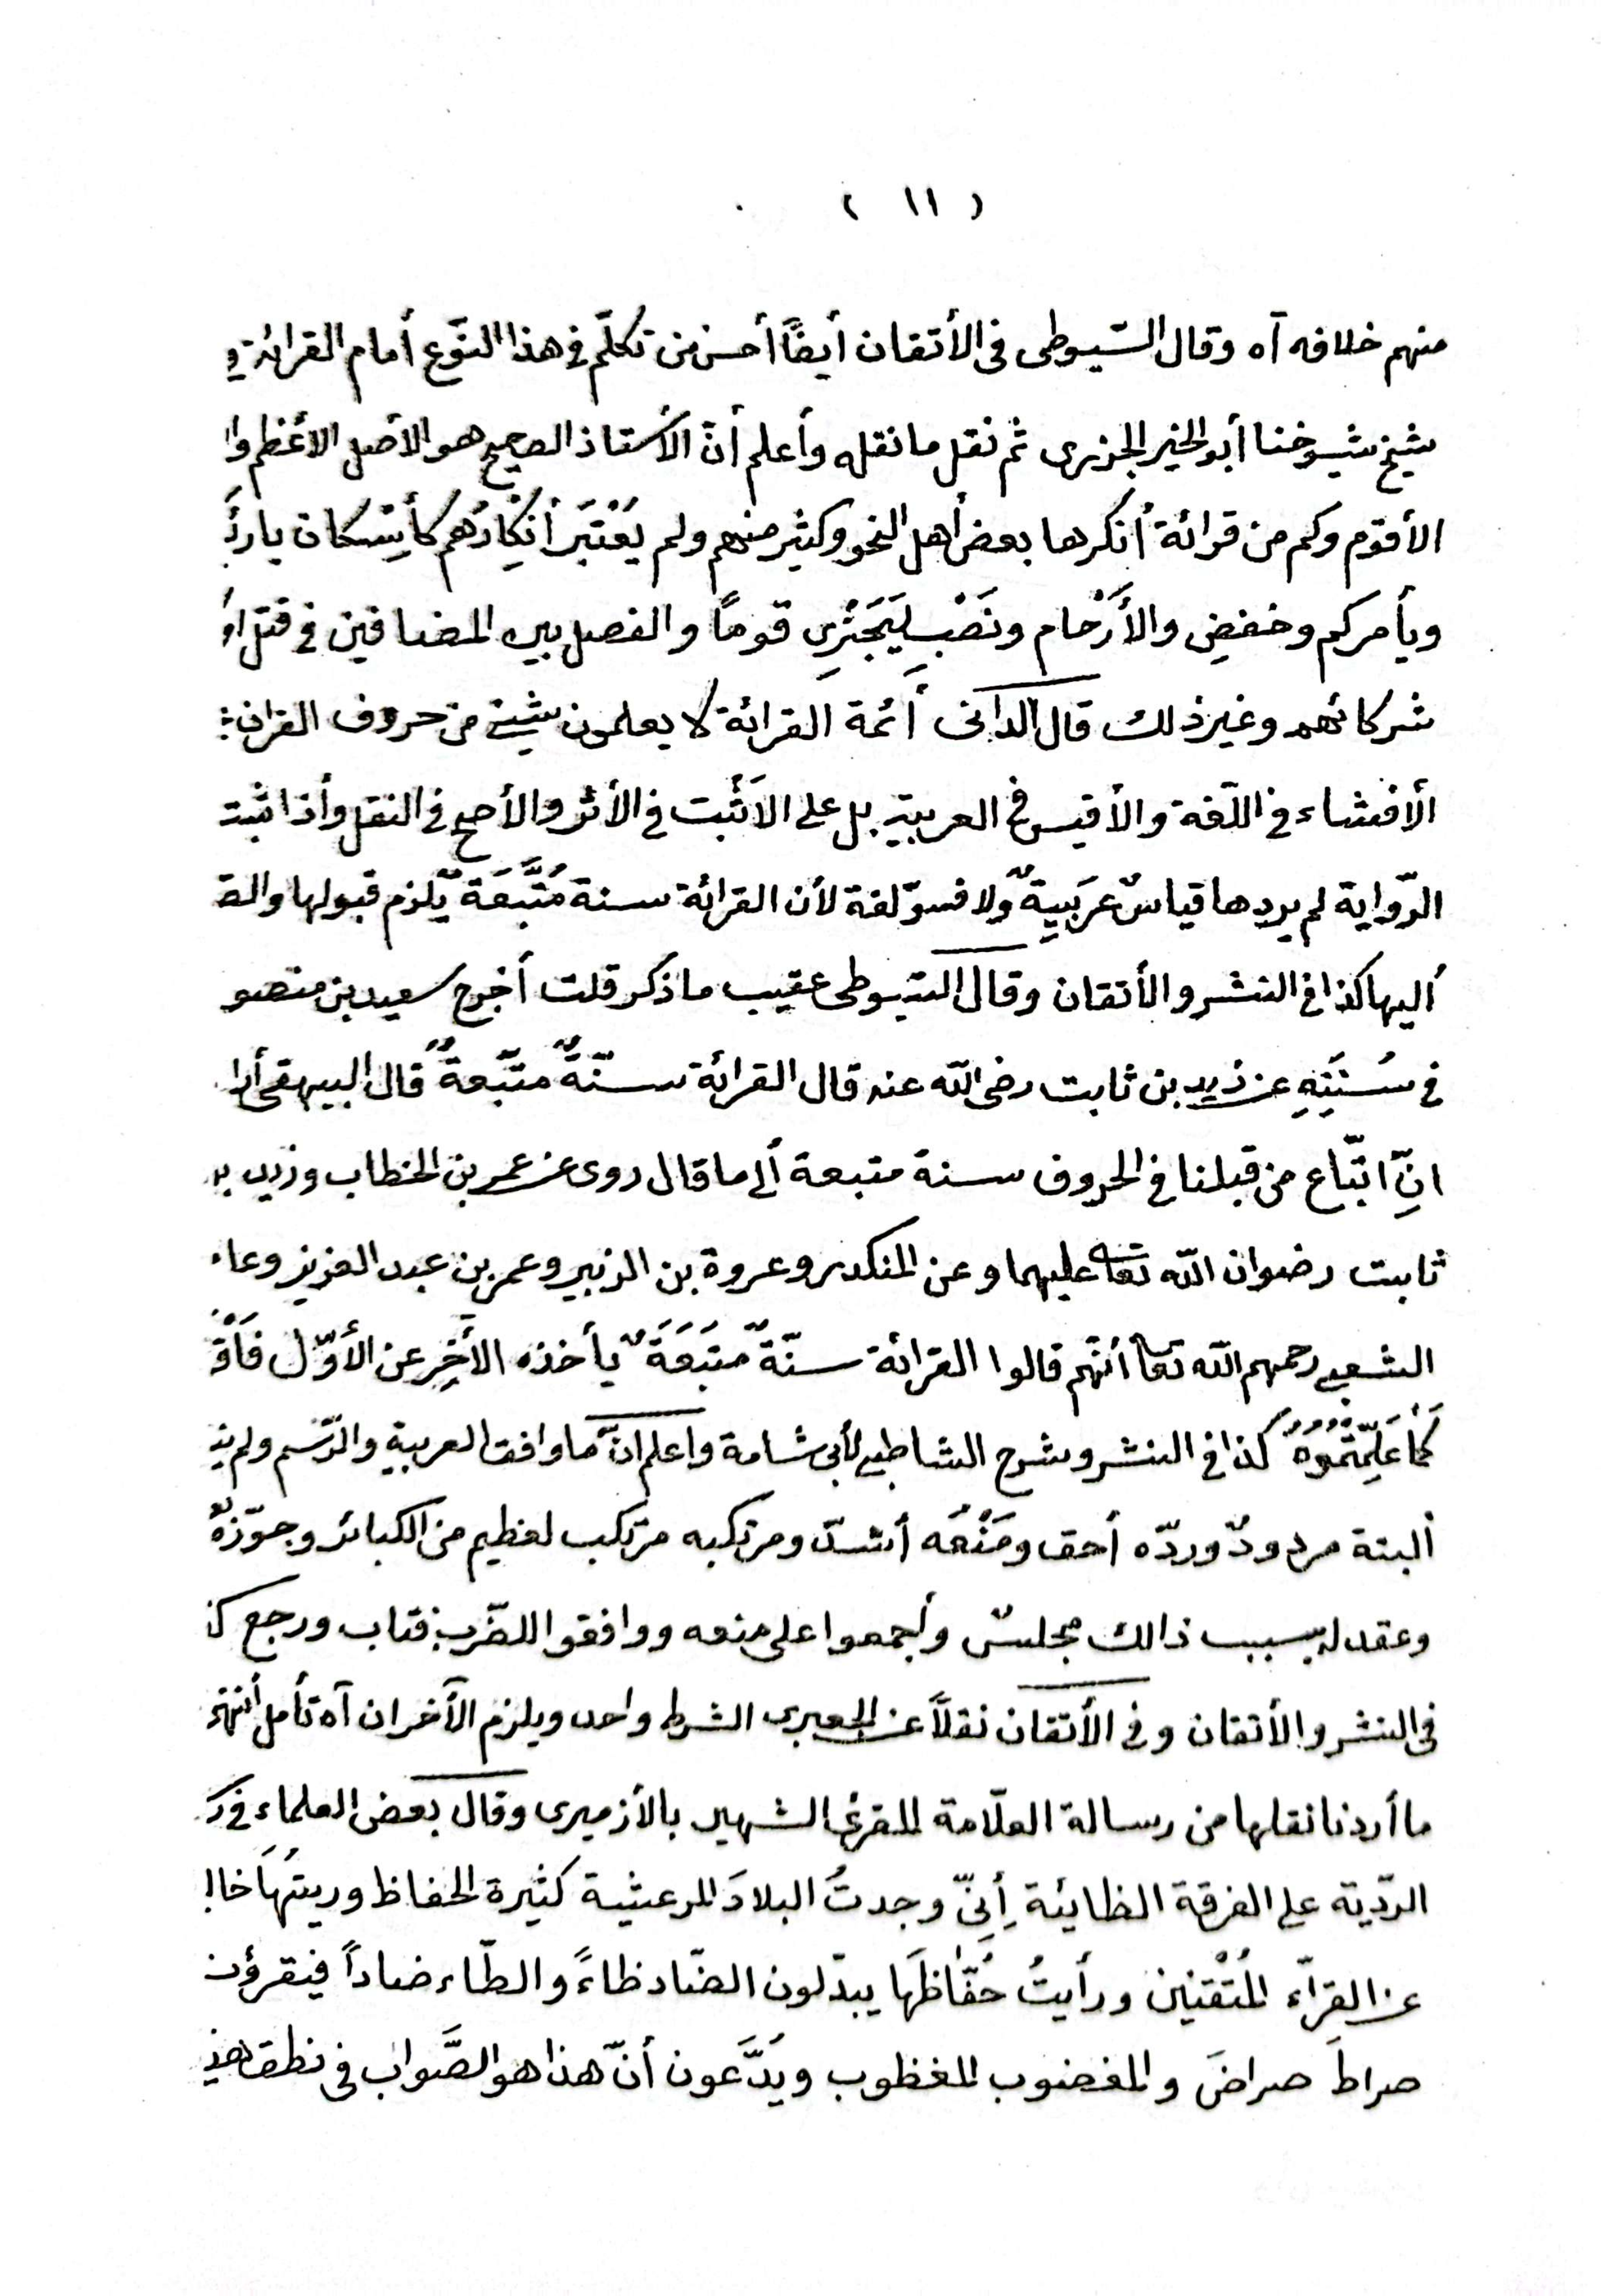 ( ١١ )
منهم خلافه آه وقال السّيوطى فى الأتقان أيضًا أحسن من تكلّم فى هذا النّوع أمام القرائة
شيخ شيوخنا أبو الخير الجزرى ثم نقل ما نقله وأعلم أنّ الأستاذ الصحيح هو الأصل الأعظم
الأقوم وكم من قرائة أنكرها بعض أهل النحو وكثير منهم ولم يُعْتَبَر أنكارُهم كأسْكان بارئ
ويأمركم وخفضِ والأَرْحام ونَصْبِ لِيَجْزِى قومًا والفصل بين المضافين فى قتل
شركائهم وغير ذلك قال الدانى أئمة القرائة لا يعلمون بشيئ من حروف القران
الأفشاء فى اللّغة والأقيس فى العربية بل على الاَثْبت فى الأثر والأصح فى النقل وأذا ثبت
الرّواية لم يردها قياسُ عَرَبيةٍ ولا فسوّ لغة لأن القرائة سنة مُتَّبَعَة يّلزم قبولها
أليها كذا فى النشر والأتقان وقال السّيوطى عقيب ما ذكر قلت أخرج سعيد بن منصو
فى سُنَنِهِ عن زيد بن ثابت رضى الله عنه قال القرائة سنّةٌ متّبعةٌ قال البيهقى
انّ اتّباع من قبلنا فى الحروف سنة متبعة ألى ما قال روى عن عمر بن الخطاب وزيد
ثابت رضوان الله تعا عليهما وعن المنكدر وعروة بن الزبير وعمر بن عبد العزيز وعا
الشعبى رحمهم الله تعا أنّهم قالوا القرائة سنّةٌ متبَعَةٌ يأخذه الأَخِر عن الأوّل
كَمَا عَلِّمْتُمُوهُ كذا فى النشر وشرح الشاطبى لأبى شامة واعلم انّ ما وافق العربية والرّسم ولم
ألبتة مردودٌ وردّه أحق ومَنْعُه أشدّ ومرتكبه مرتكب لعظيم من الكبائر وجوّزهُ
وعقد له بسبب ذالك مجلسٌ وأجمعوا على منعه ووافقوا للضّرب فتاب ورجع
فى النشر والأتقان وفى الأتقان نقلاً عن الجعبرى الشرط واحد ويلزم الآخران آه تأمل أنتهى
ما أردنا نقلها من رسالة العلّامة المقرئ الشهير بالأزميرى وقال بعض العلماء فى
الردّية على الفرقة الظائية أِنّى وجدتُ البلادَ المرعشية كثيرة الحفاظ وريتُهَا
عن القرّاء المُتْقنين ورأيتُ حُفّاظَهَا يبدّلون الضّاد ظاءً والطّاء ضاداً فيقرؤن
صراطَ صراضَ والمغضوب المغظوب ويَدَّعون أنّ هذا هو الصَّواب فى نطق